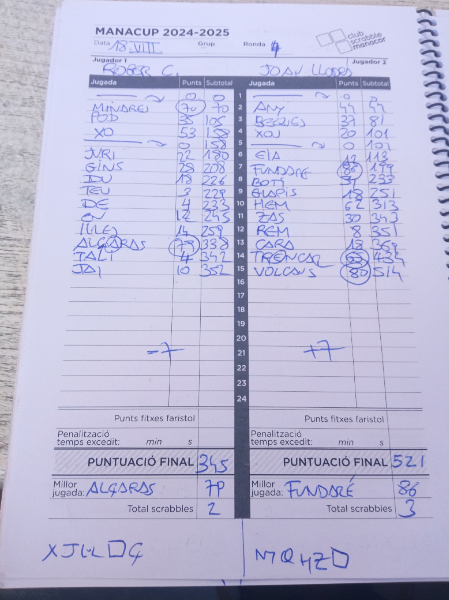 MANACUP 2024-2025
Data 18 VIII Grup Ronda 4
club scrabble manacor
Jugador 1 ROBER C. JOAN LLOBES Jugador 2
Jugada Punts Subtotal Jugada Punts Subtotal
0 0 1 0
70 70 2 ANY 44 44
POD 35 105 3 37 81
XO 53 158 4 XOU 20 101
0 158 5 0 101
JURI 22 180 6 EIA 12 113
GINS 28 208 7 FUNDARÉ 86 199
DU 18 226 8
TEU 3 229 9 18 251
DE 4 233 10 HEM 62 313
EN 12 245 11 ZAS 30 343
14 259 12 REM 8 351
ALGARAS 79 338 13 CARA 18 369
TALI 4 342 14 TRENCAL 65 434
JAI 10 352 15 VOLCANS 80 514
16
17
18
19
20
-7 21 +7
22
23
24
Punts fitxes faristol Punts fitxes faristol
Penalització temps excedit: min s Penalització temps excedit: min s
PUNTUACIÓ FINAL 345 PUNTUACIÓ FINAL 521
Millor jugada: ALGARAS 79 Millor jugada: FUNDARÉ 86
Total scrabbles 2 Total scrabbles 3